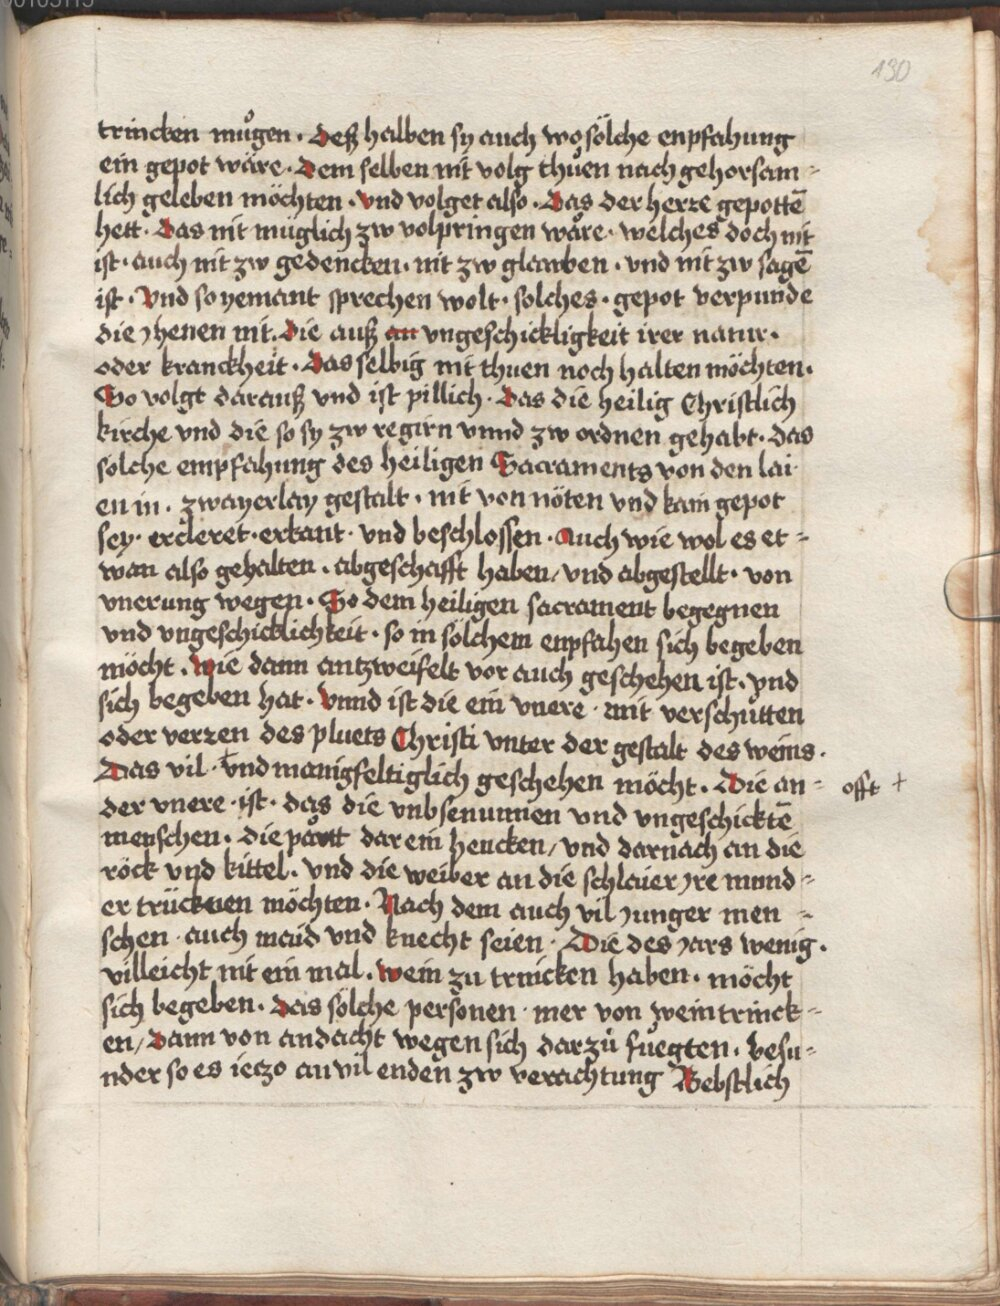 130
trincken mügen · Deß halben sy auch wo sölche enpfahung
ein gepot wäre · Dem selben nit volg thuͦen nach gehorsam=
lich geleben möchten · vnd volget also · Das der herre gepottē
hett · Das nit müglich zw volpringen wäre · welches doch nit
ist · auch nit zw gedencken · nit zw glawben · vnd nit zw sagē
ist · Vnd so yemant sprechen wolt · solches · gepot verpunde
die jhenen nit. Die auß an vngeschickligkeit irer natur ·
oder kranckheit · Das selbig nit thuen noch halten möchten ·
So volgt darauß vnd ist pillich · Das die heilig Christlich
kirche vnd die so sy zw regirn vnnd zw ordnen gehabt · das
solche empfahung des heiligen Sacraments von den lai
en in · zwayerlay gestalt · nit von nöten vnd kain gepot
sey · ercleret · erkant · vnd beschlossen · Auch wie wol es et=
wan also gehalten · abgeschafft haben / vnd abgestellt · von
vnerung wegen · So dem heiligen sacrament begegnen
vnd vngeschicklichkeit · so in sölchem enpfahen sich begeben
möcht · wie dann antzweifelt vor auch geschehen ist · vnd
sich begeben hat · Vnnd ist die ein vnere · mit verschütten
oder verzen des pluets Christi vnter der gestalt des weins ·
Das vil + vnd manigfeltiglich geschehen möcht · Die an=
offt +
der vnere · ist · das die vnbsenunnen vnd vngeschicktē
menschen · die part darein hencken / vnd darnach an die
röck vnd kittel · vnd die weiber an die schlaier jre mund=
er trücknen möchten · Nach dem auch vil junger men=
schen · auch maid vnd knecht seien · Die des jars wenig ·
villeicht nit ein mal · wein zu trincken haben · möcht
sich begeben · Das sölche personen · mer von weintrinck=
en / Dann von andacht wegen sich darzuͦ fuegten · besu=
nder so es ieczo an vil enden zw verachtung Bebstlich